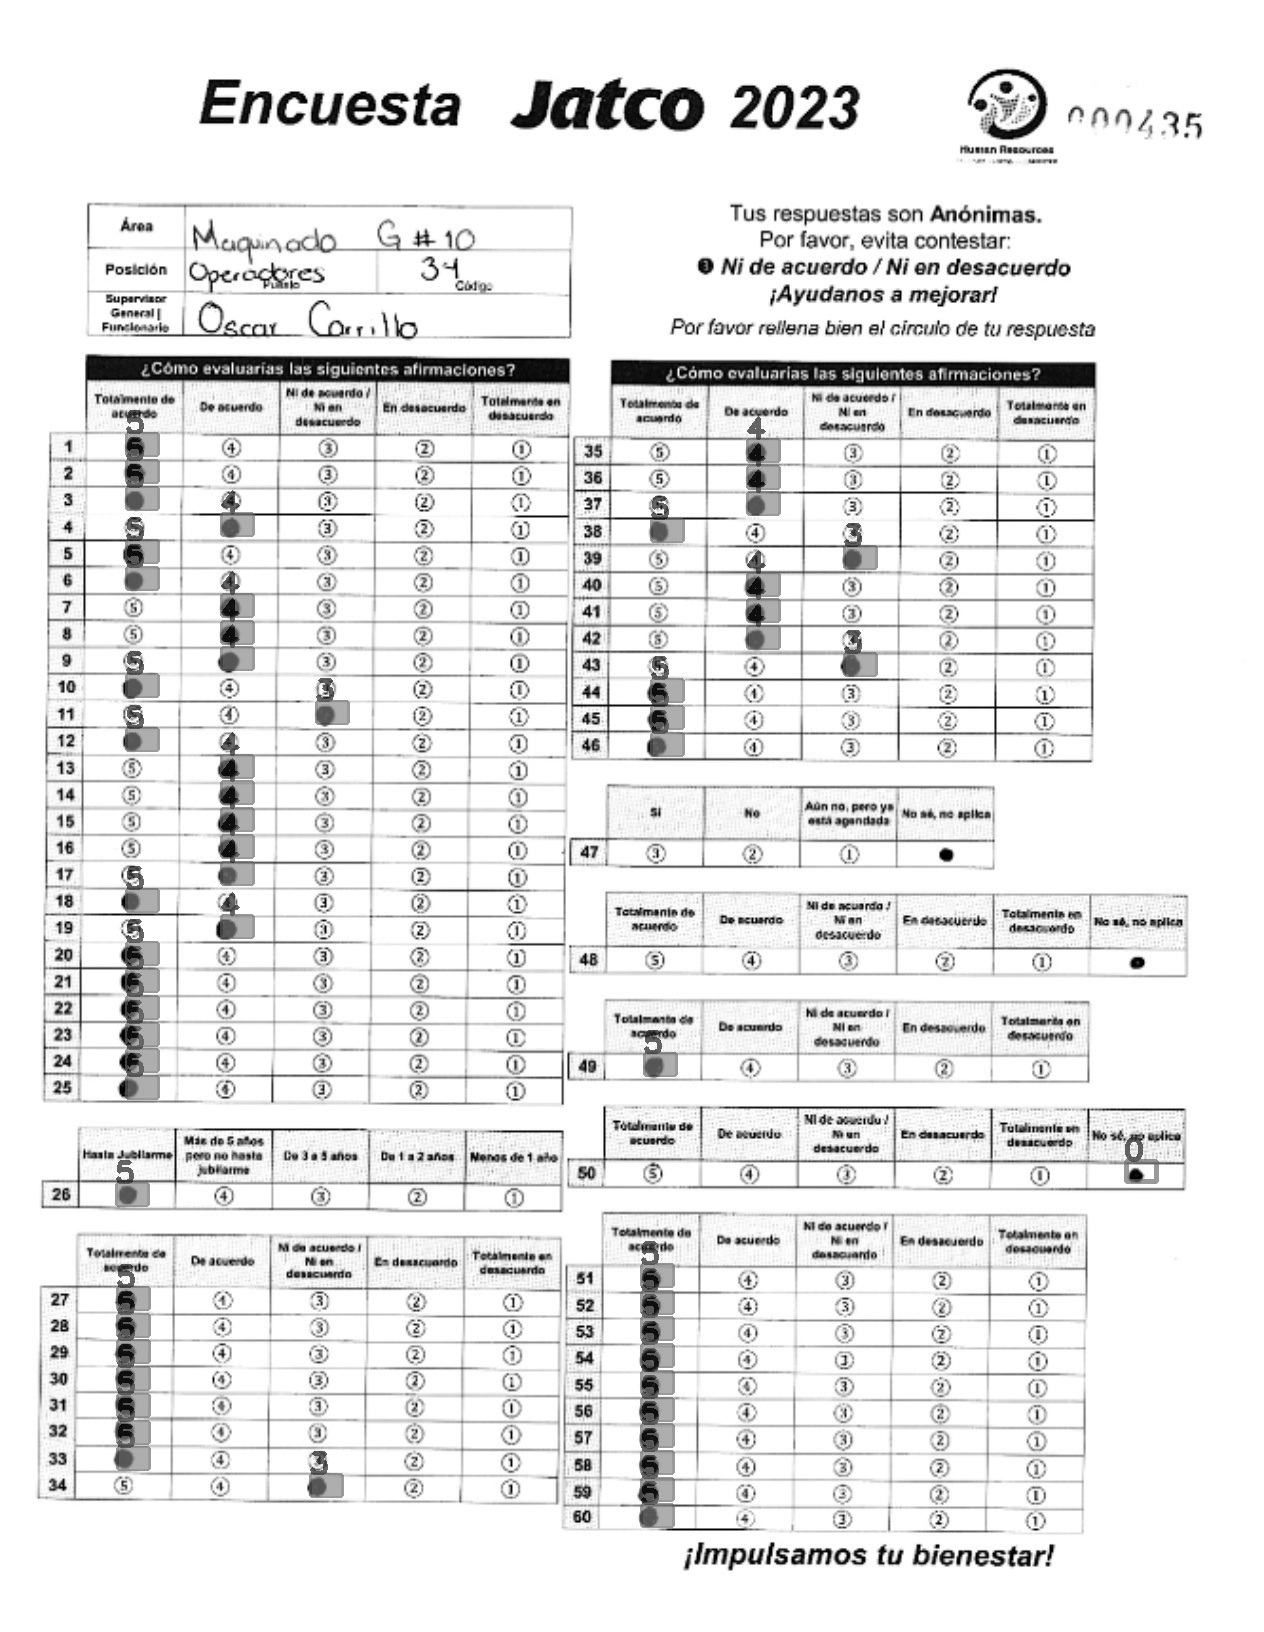 Encuesta Jatco 2023
Human Resources
000435
Área Maquinado G#10
Posición Operadores 34
Puesto Código
Supervisor General | Funcionario Oscar Carrillo
Tus respuestas son Anónimas.
Por favor, evita contestar:
❸ Ni de acuerdo / Ni en desacuerdo
¡Ayudanos a mejorar!
Por favor rellena bien el círculo de tu respuesta
¿Cómo evaluarías las siguientes afirmaciones?
Totalmente de acuerdo De acuerdo Ni de acuerdo / Ni en desacuerdo En desacuerdo Totalmente en desacuerdo
5
1 5 4 3 2 1
2 5 4 3 2 1
3 4 3 2 1
4 5 3 2 1
5 5 4 3 2 1
6 4 3 2 1
7 5 4 3 2 1
8 5 4 3 2 1
9 5 3 2 1
10 4 3 2 1
11 5 4 2 1
12 4 3 2 1
13 5 4 3 2 1
14 5 4 3 2 1
15 5 4 3 2 1
16 5 4 3 2 1
17 5 3 2 1
18 4 3 2 1
19 5 3 2 1
20 5 4 3 2 1
21 5 4 3 2 1
22 5 4 3 2 1
23 5 4 3 2 1
24 5 4 3 2 1
25 4 3 2 1
Hasta Jubilarme Más de 5 años pero no hasta jubilarme De 3 a 5 años De 1 a 2 años Menos de 1 año
5
26 4 3 2 1
Totalmente de acuerdo De acuerdo Ni de acuerdo / Ni en desacuerdo En desacuerdo Totalmente en desacuerdo
5
27 5 4 3 2 1
28 5 4 3 2 1
29 5 4 3 2 1
30 5 4 3 2 1
31 5 4 3 2 1
32 5 4 3 2 1
33 4 3 2 1
34 5 4 2 1
¿Cómo evaluarías las siguientes afirmaciones?
Totalmente de acuerdo De acuerdo Ni de acuerdo / Ni en desacuerdo En desacuerdo Totalmente en desacuerdo
4
35 5 4 3 2 1
36 5 4 3 2 1
37 5 3 2 1
38 4 3 2 1
39 5 4 2 1
40 5 4 3 2 1
41 5 4 3 2 1
42 5 3 2 1
43 5 4 2 1
44 5 4 3 2 1
45 5 4 3 2 1
46 4 3 2 1
Sí No Aún no, pero ya está agendada No sé, no aplica
47 3 2 1
Totalmente de acuerdo De acuerdo Ni de acuerdo / Ni en desacuerdo En desacuerdo Totalmente en desacuerdo No sé, no aplica
48 5 4 3 2 1
Totalmente de acuerdo De acuerdo Ni de acuerdo / Ni en desacuerdo En desacuerdo Totalmente en desacuerdo
5
49 4 3 2 1
Totalmente de acuerdo De acuerdo Ni de acuerdo / Ni en desacuerdo En desacuerdo Totalmente en desacuerdo No sé, no aplica
0
50 5 4 3 2 1
Totalmente de acuerdo De acuerdo Ni de acuerdo / Ni en desacuerdo En desacuerdo Totalmente en desacuerdo
5
51 5 4 3 2 1
52 5 4 3 2 1
53 5 4 3 2 1
54 5 4 3 2 1
55 5 4 3 2 1
56 5 4 3 2 1
57 5 4 3 2 1
58 5 4 3 2 1
59 5 4 3 2 1
60 4 3 2 1
¡Impulsamos tu bienestar!